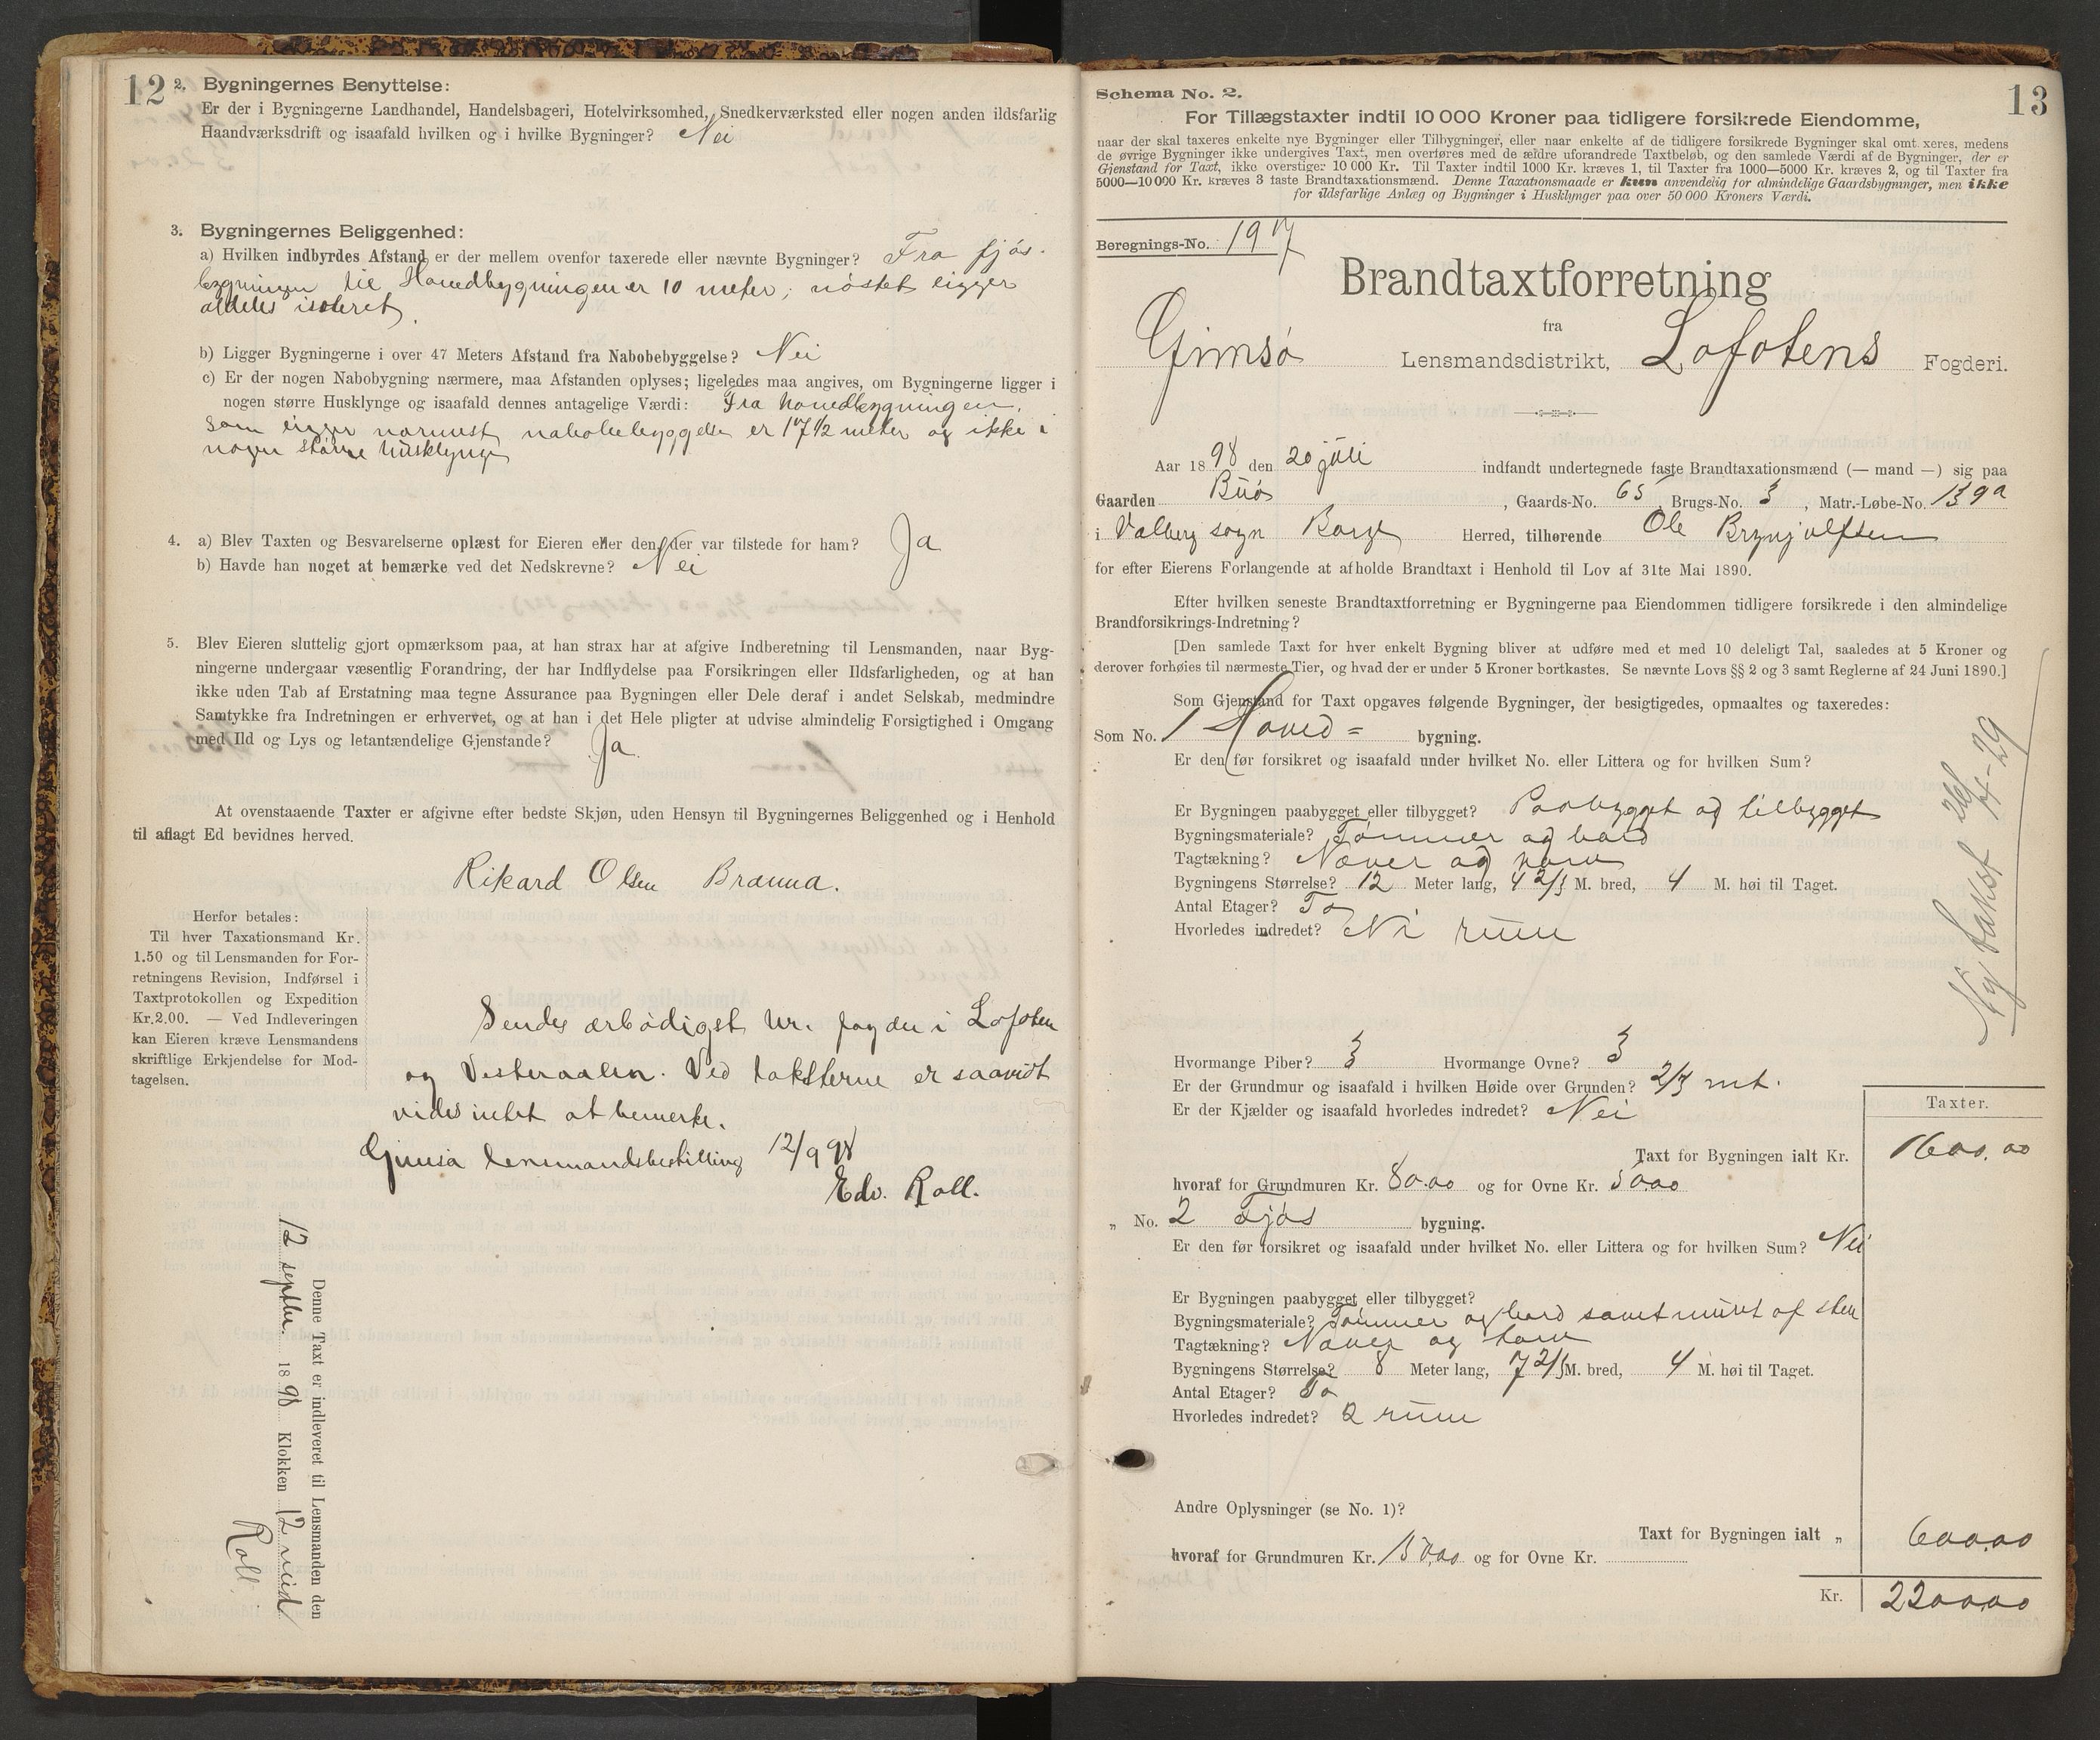 12
2. Bygningernes Benyttelse:
Er der i Bygningerne Landhandel, Handelsbageri, Hotelvirksomhed, Snedkerværksted eller nogen anden ildsfarlig
Haandværksdrift og isaafald hvilken og i hvilke Bygninger? Nei
3. Bygningernes Beliggenhed:
a) Hvilken indbyrdes Afstand er der mellem ovenfor taxerede eller nævnte Bygninger? Fra fjøs-
bygningen til Hovedbygningen er 10 meter; nøstet ligger
aldeles isoleret.
b) Ligger Bygningerne i over 47 Meters Afstand fra Nabobebyggelse? Nei
c) Er der nogen Nabobygning nærmere, maa Afstanden oplyses; ligeledes maa angives, om Bygningerne ligger i
nogen større Husklynge og isaafald dennes antagelige Værdi: Fra hovedbygningen,
som ligger nærmest nabobebyggelse er 17 1/2 meter og ikke i
nogen større husklynge
4. a) Blev Taxten og Besvarelserne oplæst for Eieren eller den, der var tilstede for ham? Ja
b) Havde han noget at bemærke ved det Nedskrevne? Nei
5. Blev Eieren sluttelig gjort opmærksom paa, at han strax har at afgive Indberetning til Lensmanden, naar Byg-
ningerne undergaar væsentlig Forandring, der har Indflydelse paa Forsikringen eller Ildsfarligheden, og at han
ikke uden Tab af Erstatning maa tegne Assurance paa Bygningen eller Dele deraf i andet Selskab, medmindre
Samtykke fra Indretningen er erhvervet, og at han i det Hele pligter at udvise almindelig Forsigtighed i Omgang
med Ild og Lys og letantændelige Gjenstande? Ja
At ovenstaaende Taxter er afgivne efter bedste Skjøn, uden Hensyn til Bygningernes Beliggenhed og i Henhold
til aflagt Ed bevidnes herved.
Rikard Olsen
Herfor betales:
Til hver Taxationsmand Kr.
1.50 og til Lensmanden for For-
retningens Revision, Indførsel i
Taxtprotokollen og Expedition
Kr.2.00. — Ved Indleveringen
kan Eieren kræve Lensmandens
skriftlige Erkjendelse for Mod-
tagelsen.
Sendes ærbødigst hr. fogden i Lofoten
og Vesteraalen. Ved taksterne er saavidt
vides intet at bemerke.
Gimsø lensmandsbestilling 12/9 98
Edv. Roll.
Denne Taxt er indleveret til Lensmanden den
12 septbr. 1898 Klokken 12 mid
Roll.
13
Schema No. 2.
For Tillægstaxter indtil 10 000 Kroner paa tidligere forsikrede Eiendomme,
naar der skal taxeres enkelte nye Bygninger eller Tilbygninger, eller naar enkelte af de tidligere forsikrede Bygninger skal omt xeres, medens
de øvrige Bygninger ikke undergives Taxt, men overføres med de ældre uforandrede Taxtbeløb, og den samlede Værdi af de Bygninger, der er
Gjenstand for Taxt, ikke overstiger 10 000 Kr. Til Taxter indtil 1000 Kr. kræves 1, til Taxter fra 1000—5000 Kr. kræves 2, og til Taxter fra
5000—10 000 Kr. kræves 3 faste Brandtaxationsmænd. Denne Taxationsmaade er kun anvendelig for almindelige Gaardsbygninger, men ikke
for ildsfarlige Anlæg og Bygninger i Husklynger paa over 50 000 Kroners Værdi.
Beregnings-No. 197
Brandtaxtforretning
fra
Gimsø Lensmandsdistrikt, Lofotens Fogderi.
Aar 1898 den 20 juli indfandt undertegnede faste Brandtaxationsmænd (— mand —) sig paa
Gaarden Buøs, Gaards-No. 65 Brugs-No. 3, Matr.-Løbe-No. 139a
i Valberg sogn Borge Herred, tilhørende Ole Brynjulfsen
for efter Eierens Forlangende at afholde Brandtaxt i Henhold til Lov af 31te Mai 1890.
Efter hvilken seneste Brandtaxtforretning er Bygningerne paa Eiendommen tidligere forsikrede i den almindelige
Brandforsikrings-Indretning?
[Den samlede Taxt for hver enkelt Bygning bliver at udføre med et med 10 deleligt Tal, saaledes at 5 Kroner og
derover forhøies til nærmeste Tier, og hvad der er under 5 Kroner bortkastes. Se nævnte Lovs §§ 2 og 3 samt Reglerne af 24 Juni 1890.]
Som Gjenstand for Taxt opgaves følgende Bygninger, der besigtigedes, opmaaltes og taxeredes:
Som No. 1 Hoved= bygning.
Er den før forsikret og isaafald under hvilket No. eller Littera og for hvilken Sum?
Er Bygningen paabygget eller tilbygget? Paabygget og tilbygget
Bygningsmateriale? Tømmer og bord
Tagtækning? Næver og
Bygningens Størrelse? 12 Meter lang, 4 2/3 M. bred, 4 M. høi til Taget.
Antal Etager? To
Hvorledes indredet? Ni rum
Hvormange Piber? 3 Hvormange Ovne? 3
Er der Grundmur og isaafald i hvilken Høide over Grunden? 2/3 mt.
Er der Kjælder og isaafald hvorledes indredet? Nei
Taxter.
Taxt for Bygningen ialt Kr. 1600.00
hvoraf for Grundmuren Kr. 80.00 og for Ovne Kr. 50.00
„ No. 2 Fjøs bygning.
Er den før forsikret og isaafald under hvilket No. eller Littera og for hvilken Sum? Nei
Er Bygningen paabygget eller tilbygget?
Bygningsmateriale? Tømmer og bord samt muret af sten
Tagtækning? Næver og torv
Bygningens Størrelse? 8 Meter lang, 7 2/3 M. bred, 4 M. høi til Taget.
Antal Etager? To
Hvorledes indredet? 2 rum
Andre Oplysninger (se No. 1)?
Taxt for Bygningen ialt „ 600.00
hvoraf for Grundmuren Kr. 150.00 og for Ovne Kr.
Kr. 2200.00
Ny takst 29